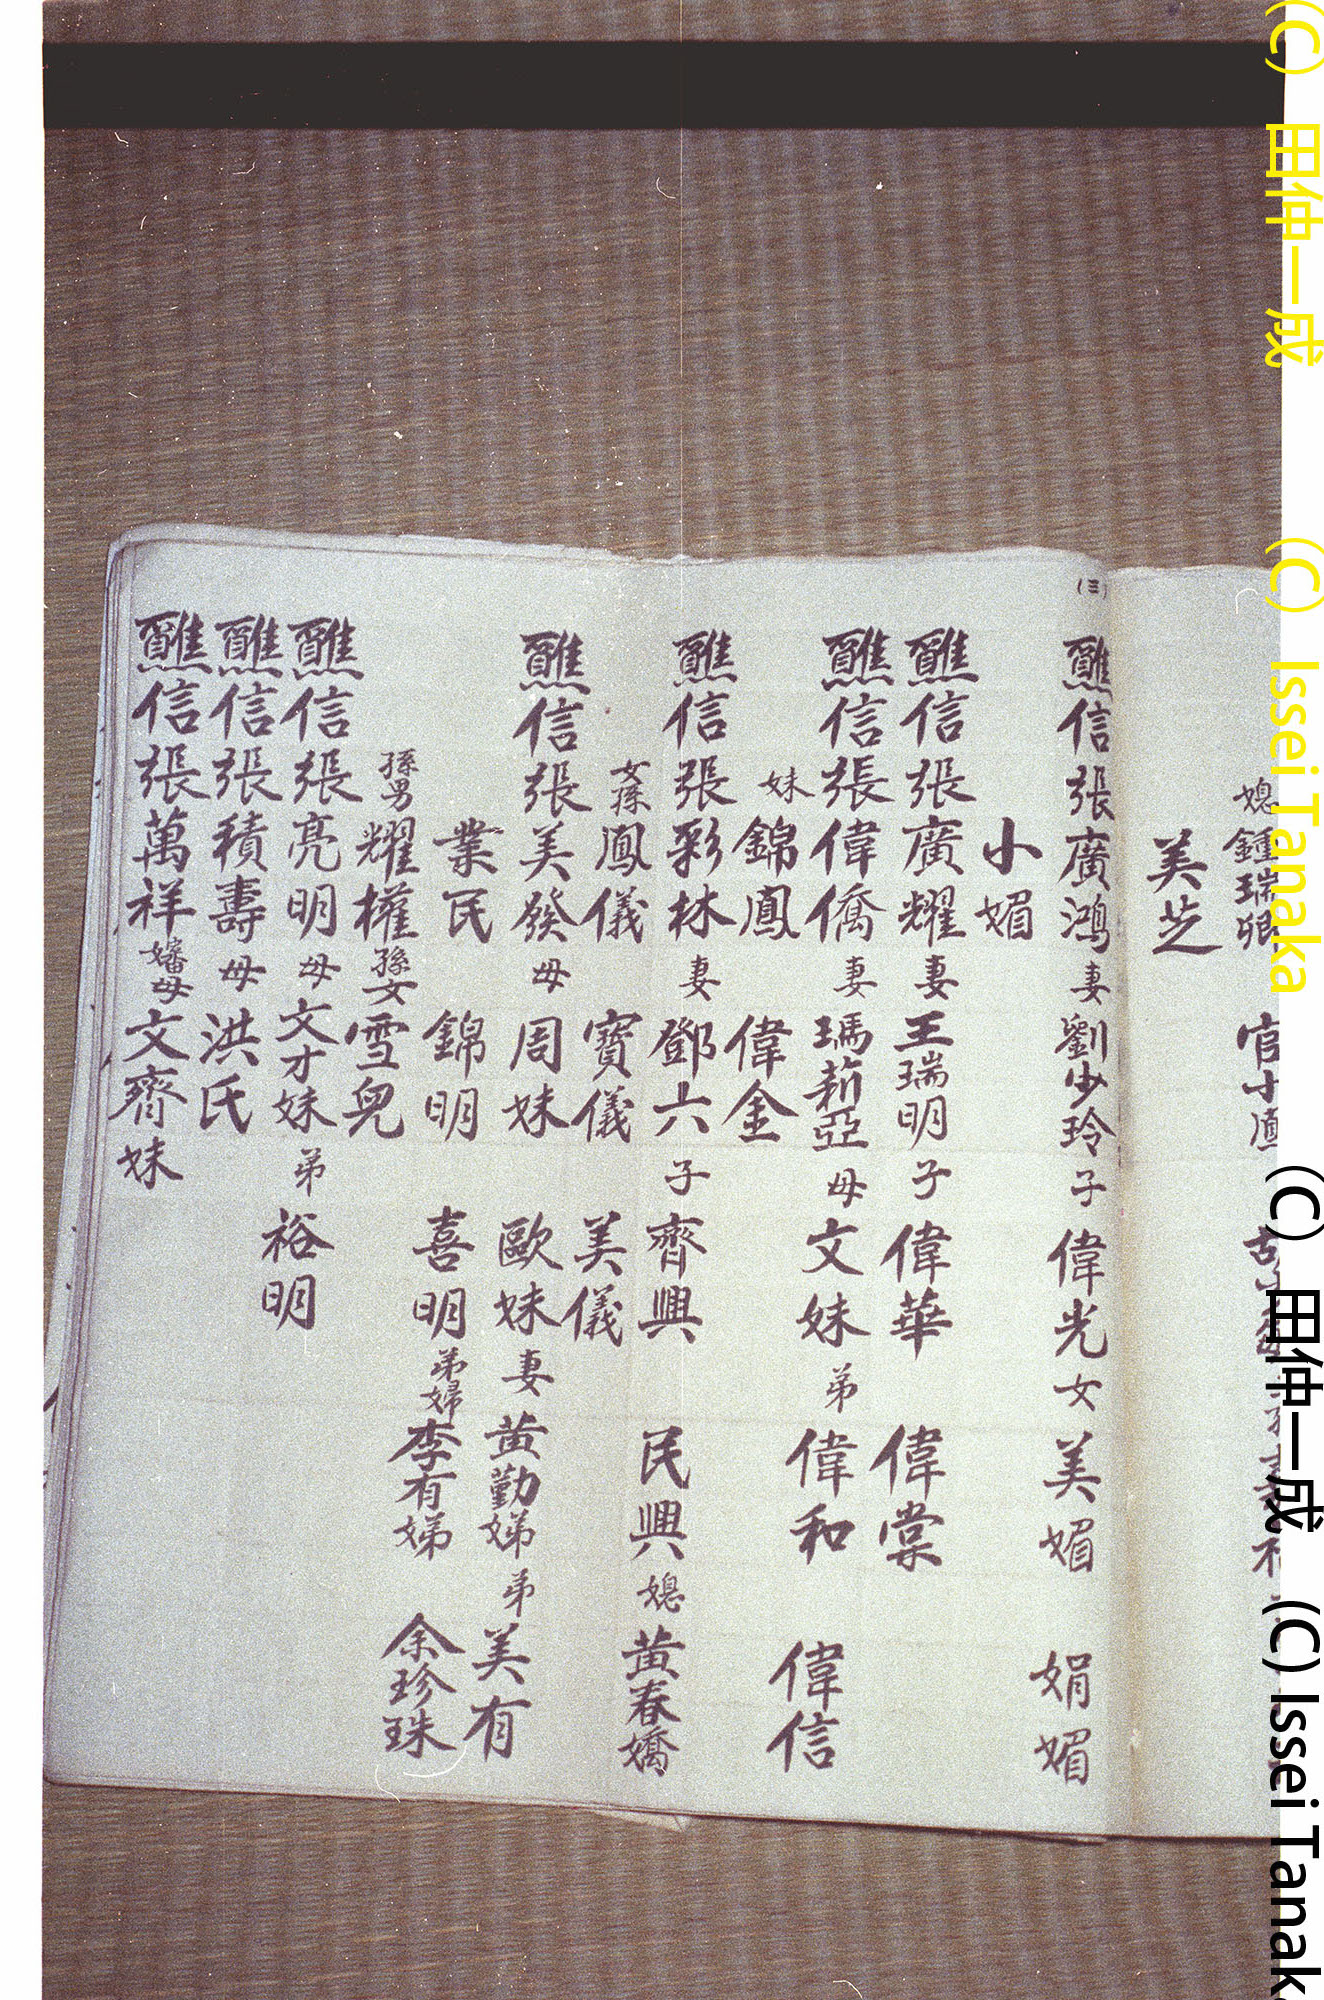 媳鍾瑞卿 官小
美芝
(三)
醮信張廣鴻妻劉少玲子偉光女美媚 娟媚
小媚
醮信張廣耀妻王瑞明子偉華 偉棠
醮信張偉僑妻瑪莉亞母文妹弟偉和 偉信
妹錦鳳 偉金
醮信張彩林妻鄧六子齊興 民興媳黃春嬌
女孫鳳儀 寶儀 美儀
醮信張美發母周妹 歐妹妻黃勤娣弟美有
業民 錦明 喜明弟婦李有娣 余珍珠
孫男耀權孫女雪兒
醮信張亮明母文才妹弟裕明
醮信張積壽母洪氏
醮信張萬祥嬸母文齊妹
(C) 田仲一成 (C) Issei Tanaka (C) 田仲一成 (C) Issei Tanaka